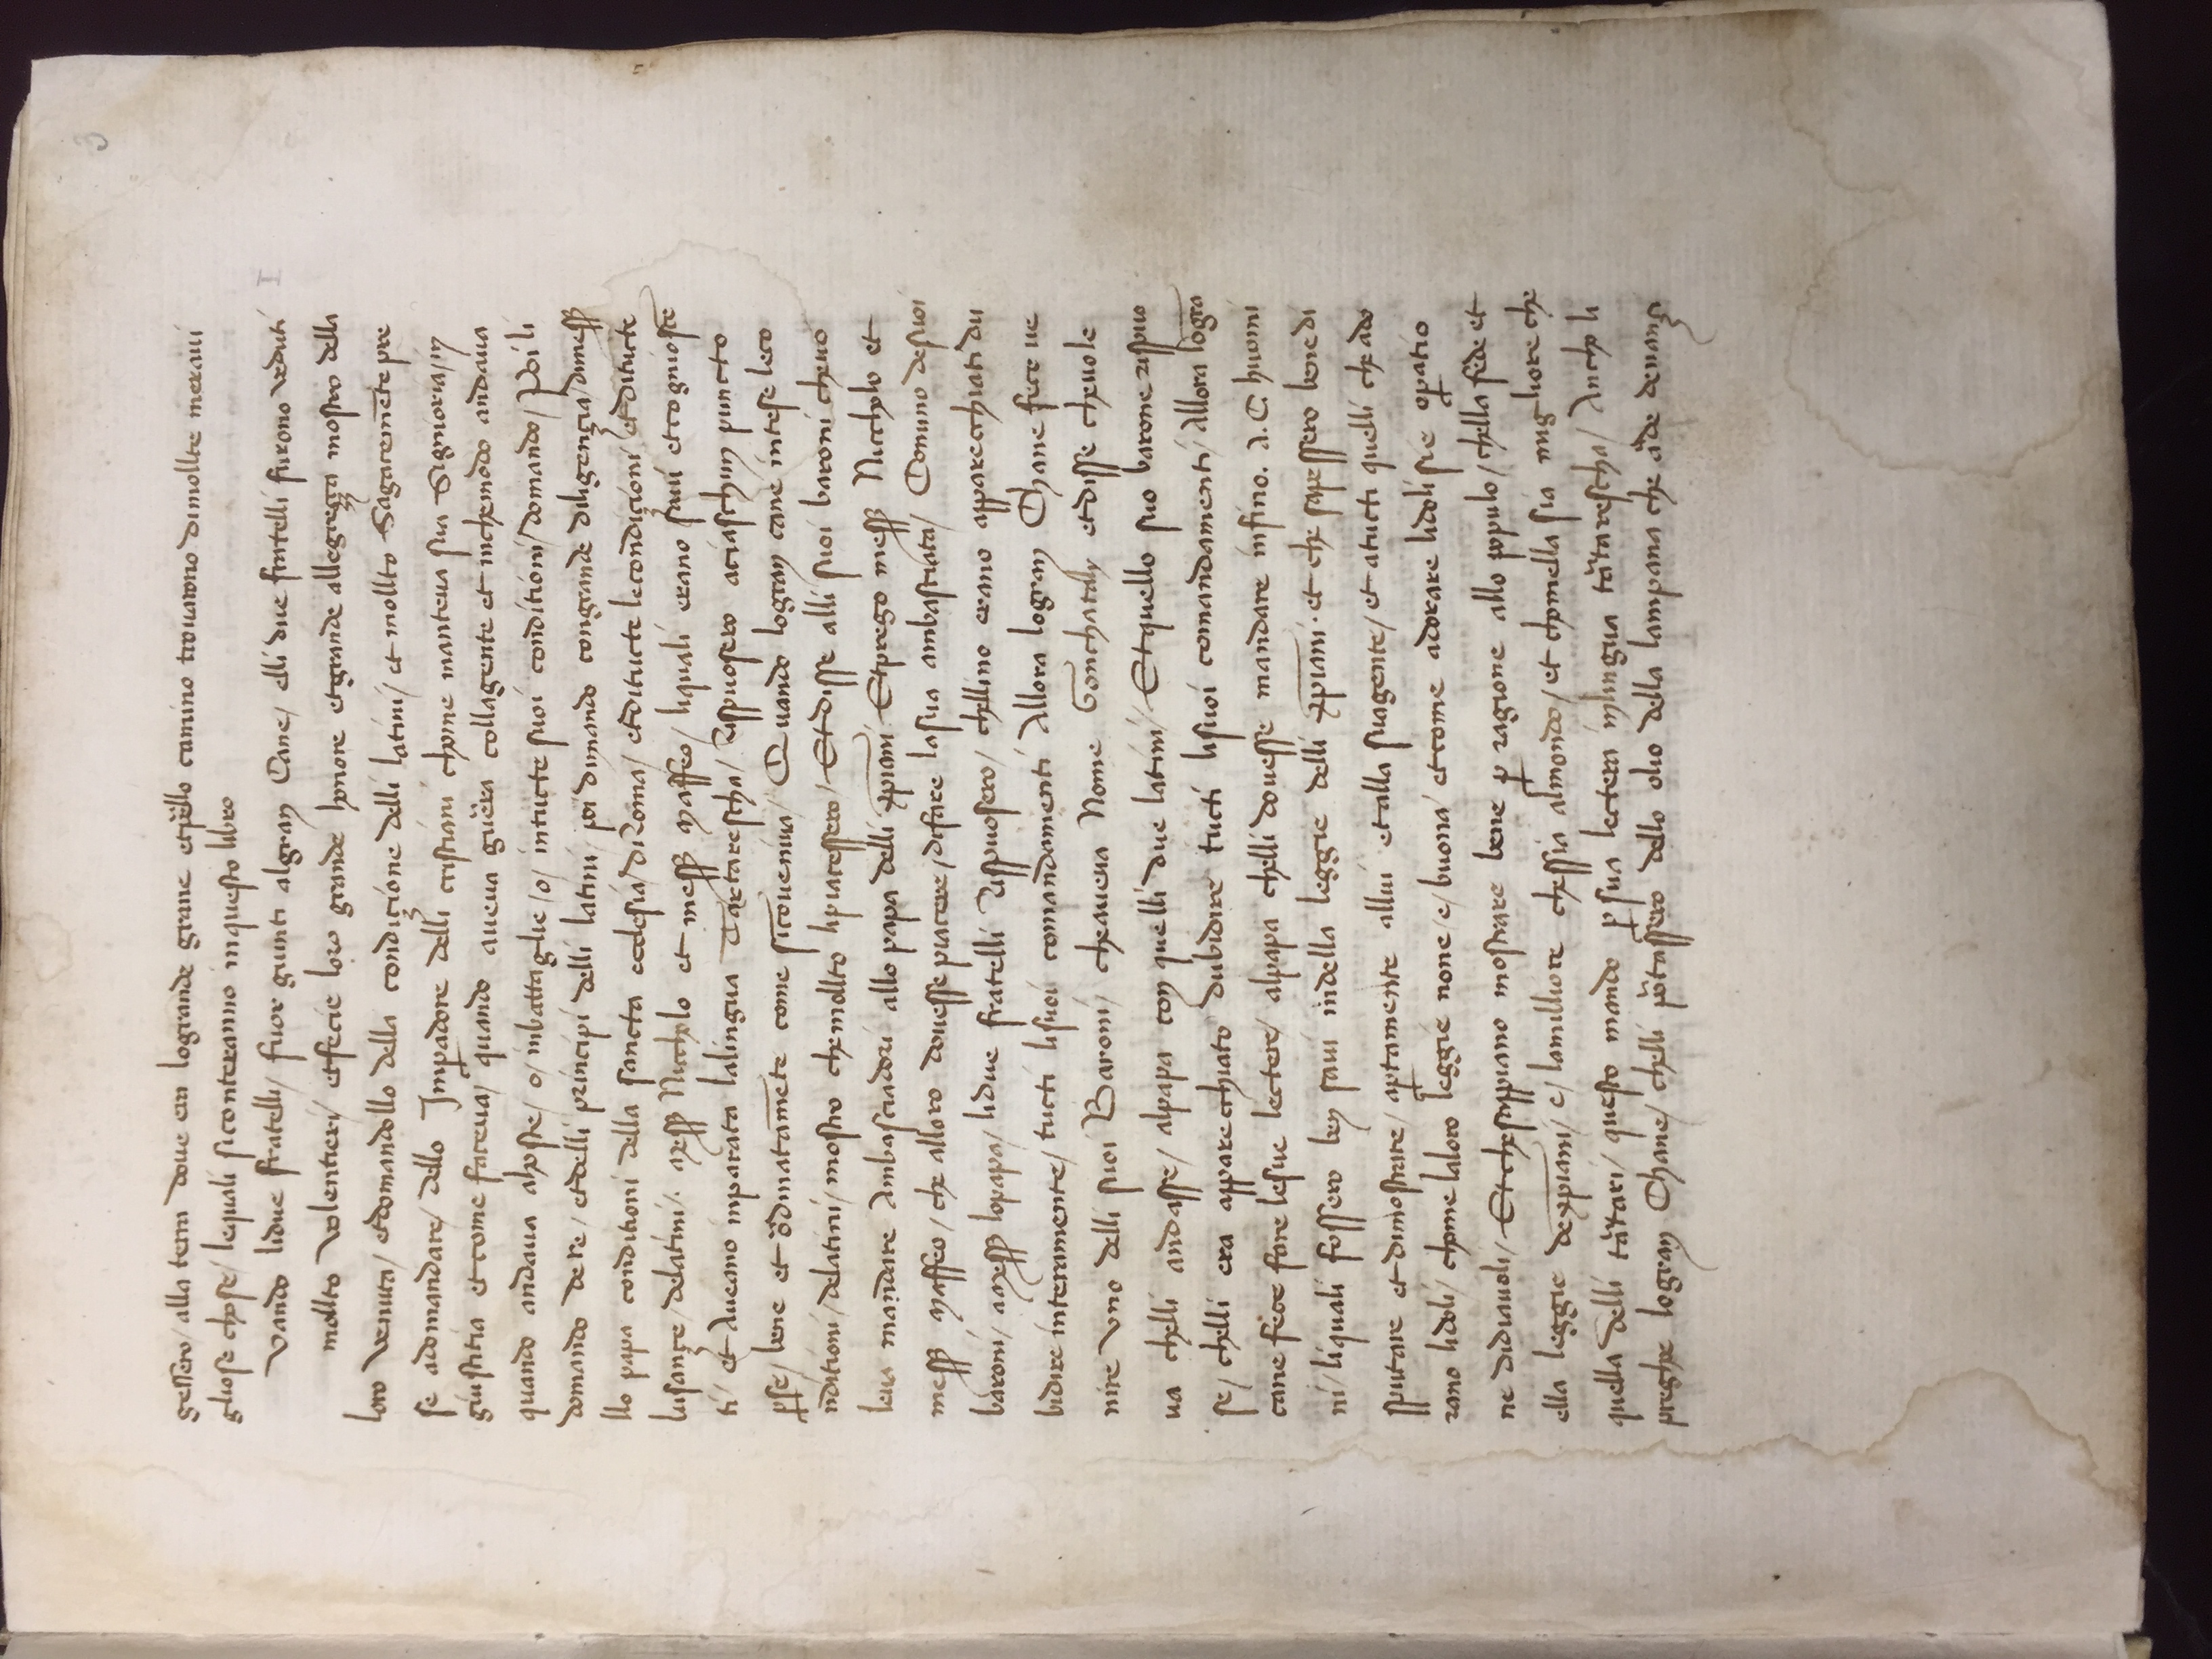 3
gessero / alla terra dove era logrande grane et p̲ello camino trovarono dimollte meravi
gliose chose / lequali siconteranno inquesto libro
I
vando lidue fratelli / fuor giunti algran Cane / elli due fratelli furono veduti
mollto volentieri / et fecie loro grande honore et grande allegreçça mostro della
loro venuta / et domandollo della condiçione delli latini / et mollto Sagacemēte pre
se adomandare / dello Imp̲adore delli cristiani chome manteva sua Signioria / in
giustitia et come faceva / quando aveva guerra collagente et inchemodo andava
quando andava ahoste / o / inbattaglie / o / intucte suoi conditioni / domando / Poi li
domando de re / et delli principi delli latini / poi dimando congrande diligençia / dimess̲
llo papa conditioni della sancta ecclesia / diRoma / et ditucte lecondiçioni et ditucte
lusançe / delatini /. Mess̲ Niccholo et mess̲ Maffeo / liquali erano savi et cognioscē
ti / et Aveano inparata lalingua Tartarescha / Rispuosero aciaschun puncto
p̲se / bene et ordinatamēte come sicōveniva / Quando logran cane intese leco
nditioni / delatini / mostro chemollto lipiacessero / Et disse alli suoi baroni chevo
leva mandare Ambasciadori allo papa delli xp̄iani Et prego mess̲ Niccholo et
mess̲ Maffeo / che alloro dovesse piacere / difare lasua ambasciata / Conuno desuoi
baroni / amess̲ lopapa / lidue fratelli Rispuosero / chellino erano apparecchiati du
bidire interamente / tucti lisuoi comandamenti Allora logran Chane fece ve
nire vno delli suoi Baroni / cheaveva Nome Gonchatal et disse chevole
va chelli andasse / alpapa con quelli due latini / Et quello suo barone rispuo
se / chelli era apparecchiato dubidire tucti lisuoi comandamenti / Allora lograā
cane fece fare lesue lectere / alpapa chelli dovesse mandare infino. A. C huomi
ni / liquali fossero ben savi indella leggie delli xp̄iani. et che sapessero bene di
sputare et dimostrare / ap̲tamente allui et alla suagente / et atucti quelli che ado
rano lidoli / chome laloro leggie none / e / buona et come adorare lidoli sie op̲atio
ne didiavoli / Et chesappiano mostrare bene p̲ ragione allo populo / chella fede et
ella leggie dexp̄iani / e / lamilliore chessia almondo / et chomella sia migliore che
quella delli tartari / questo mando p̲ sua lectera inlingua tartarescha / Ancho li
preghe logran Chane / chelli portassero dello olio della lampana che arde denançi